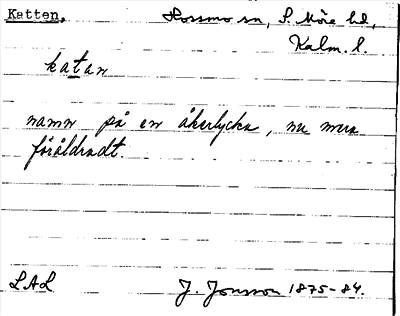 Katten,
Hossmo sn, S. Möre hd,
Kalm. l.
katan
namn på en åkerlycka, nu mera
föråldradt.
LAL
J. Jonsson 1875-84.